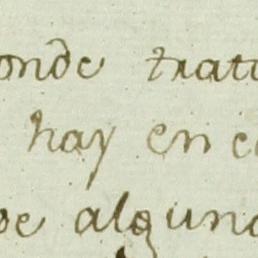 onde trat
hay en c
de alguna